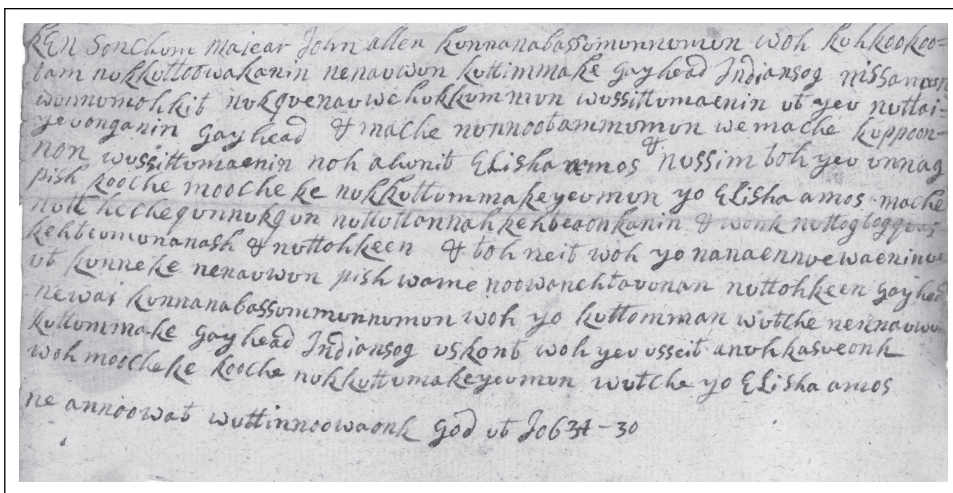 KEN Sonchum maiear John allen kunnanabassumunnumun woh kuhkookoo=
tam nukkuttoowakanin nenauwun kuttimmake Gayhead Indiansog nissanwen
wunnumohkit nukquenauwehukkummun wussittumaenin ut yeu nuttai-
yeuonganin Gayhead & mache nunnootammumun wemache kuppoon-
non wussittumaenin noh ahunit Elisha amos & nussim toh yeu unnag
pish kooche moocheke nukkuttummakeyeumun yo Elisha amos mache
nutt hechequnnukqun nuttuttannahkehteaonkanin & wonk nuttogtegquas
kehteumunanash & nuttohkeen & toh neit woh yo nanaennuewaeninue
ut kunneke nenauwun pish wame noowanehtauunan nuttohkeen Gayhead
newaj kunnanabassummunnumun woh yo kuttumman wutche nennauwun
kuttummake Gayhead Indiansog uskont woh yeu usseit anuhkasueonk
woh moocheke kooche nukkuttumakeyeumun wutche yo Elisha amos
ne annoowat wuttinnoowaonk God ut Job 34-30